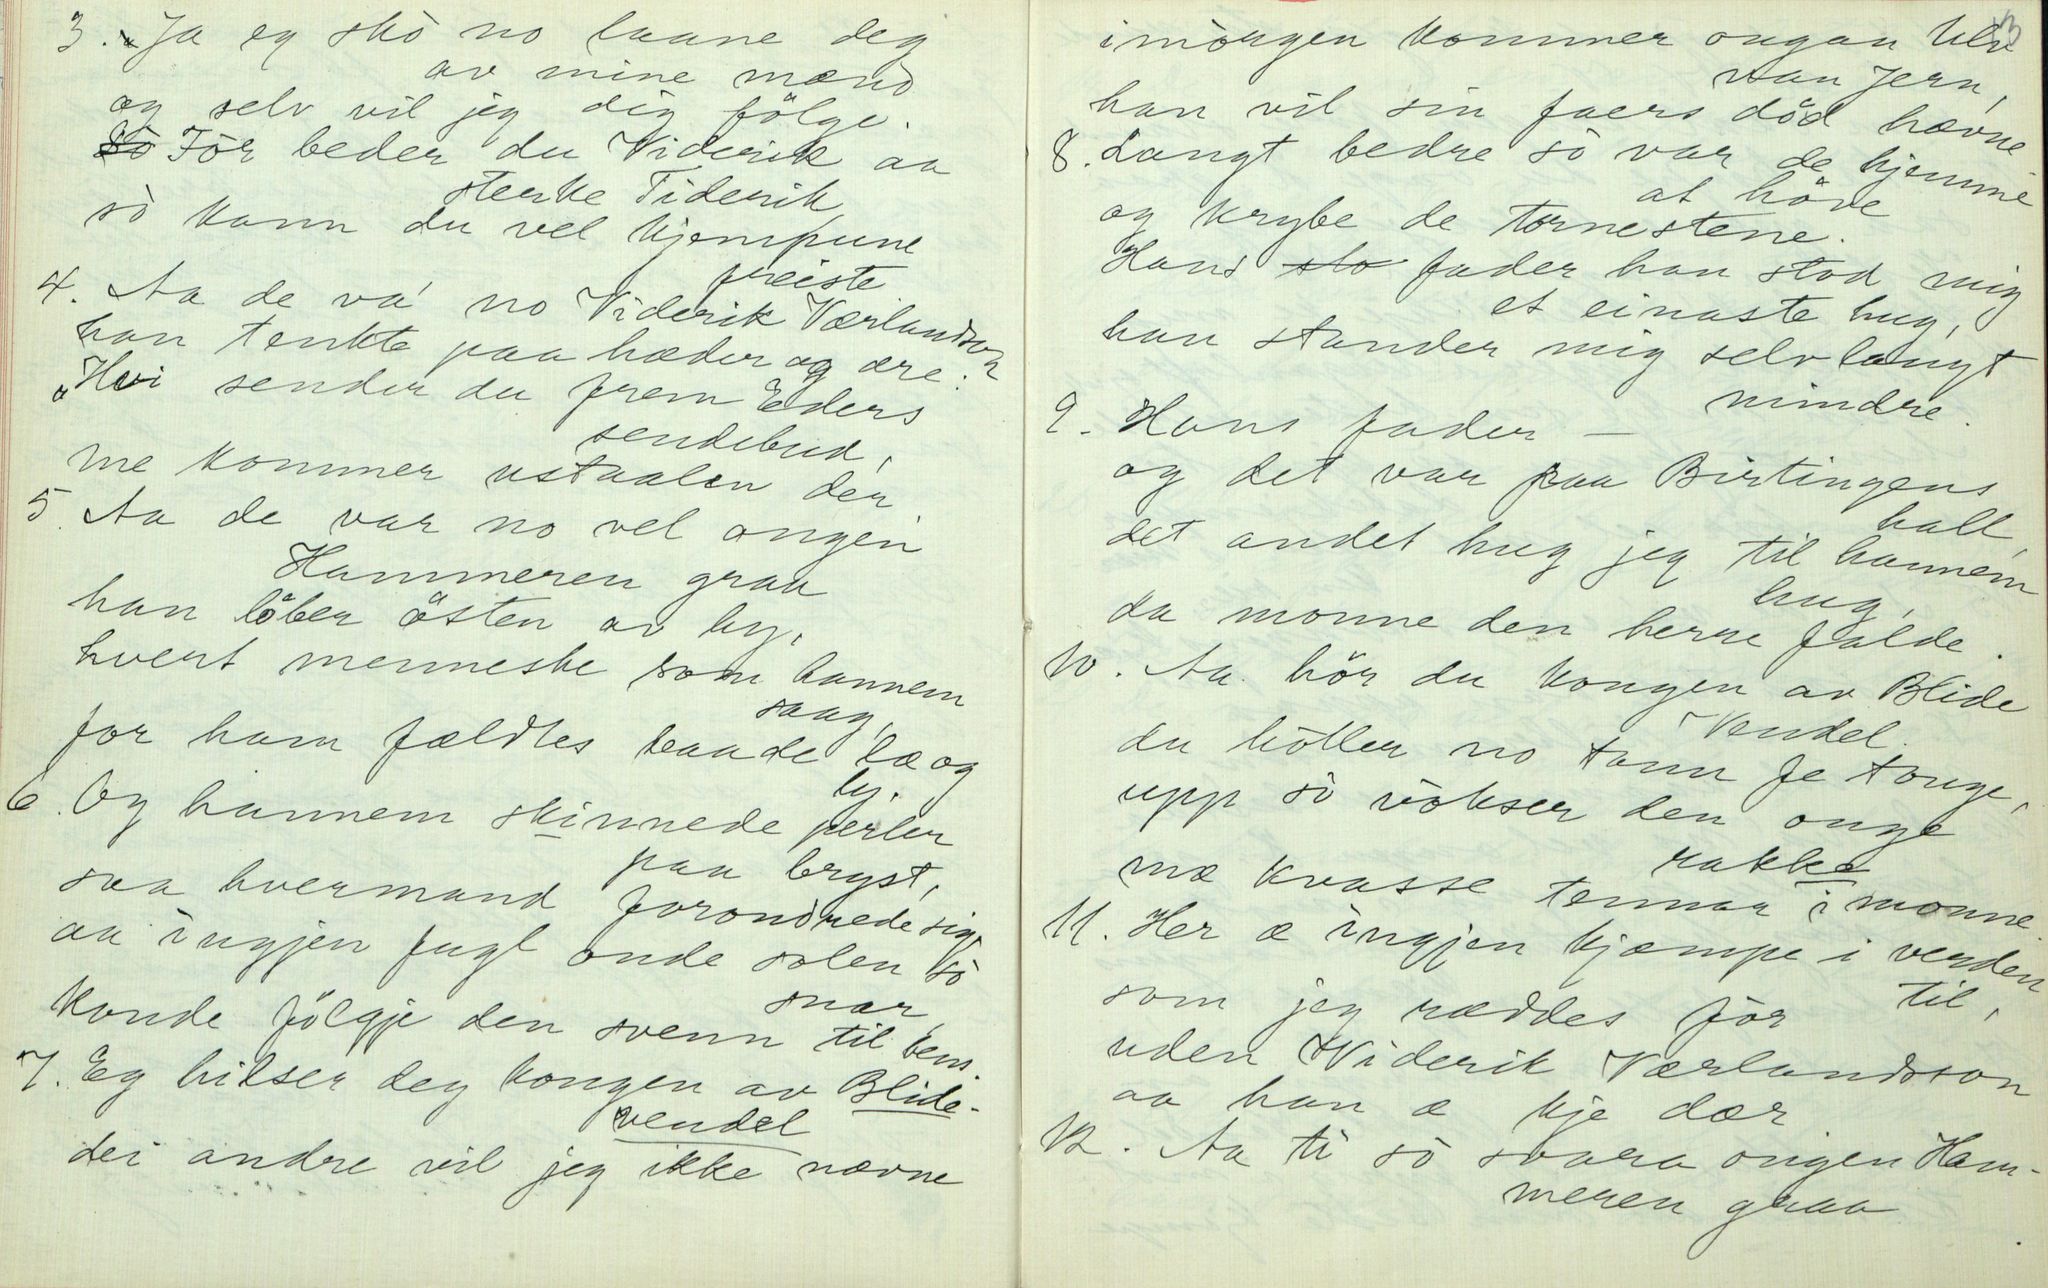 3. Ja eg skò no laane deg
av mine mænd
og selv vil jeg dig fölge.
SòFör beder du Viderik aa
sterke Tiderik
sò kann du vel kjempune
freiste.
4. Aa de va' no Viderik Værlandson
han tenkte paa hæder og ære:
"Hvi sender du frem Eders
sendebud,
me kommer ustaalen der
5. Aa de var no vel ongen
Hammeren graa
han löber östen av by,
hvert menneske som hannem
saag,
for ham fældtes baade læ og
ly.
6. Og hannem skinnede perler
paa bryst,
saa hvermand forondrede sig,
aa ingjen fugl onde solen sò
snar
konde fölgje den svenn til hens.
7. Eg hilser deg kongen av Blide-
vendel
dei andre vil jeg ikke nævne
imòrgen kommer ongan Ulv
van Jern,
han vil sin faers död hævne
8. Langt bedre sò var de hjemme
at höve
og krybe de tornestene.
Hans sto fader han stod mig
et einaste hug,
han stander mig selv langt
mindre.
9. Hans fader —
og det var paa Birtingens
hall,
det andet hug jeg til hannem
hug,
da monne den herre falde.
10. Aa hör du kongen av Blide
Vendel.
du hòller no tann je tonge,
upp sò vòkser den onge
rakke
mæ kvasse tennar i monne.
11. Her æ ingjen kjæmpe i verden
til,
som jeg ræddes för
uden Widerik Værlandsson
aa han æ kje dær
12. Aa ti sò svara ongen Ham-
meren graa